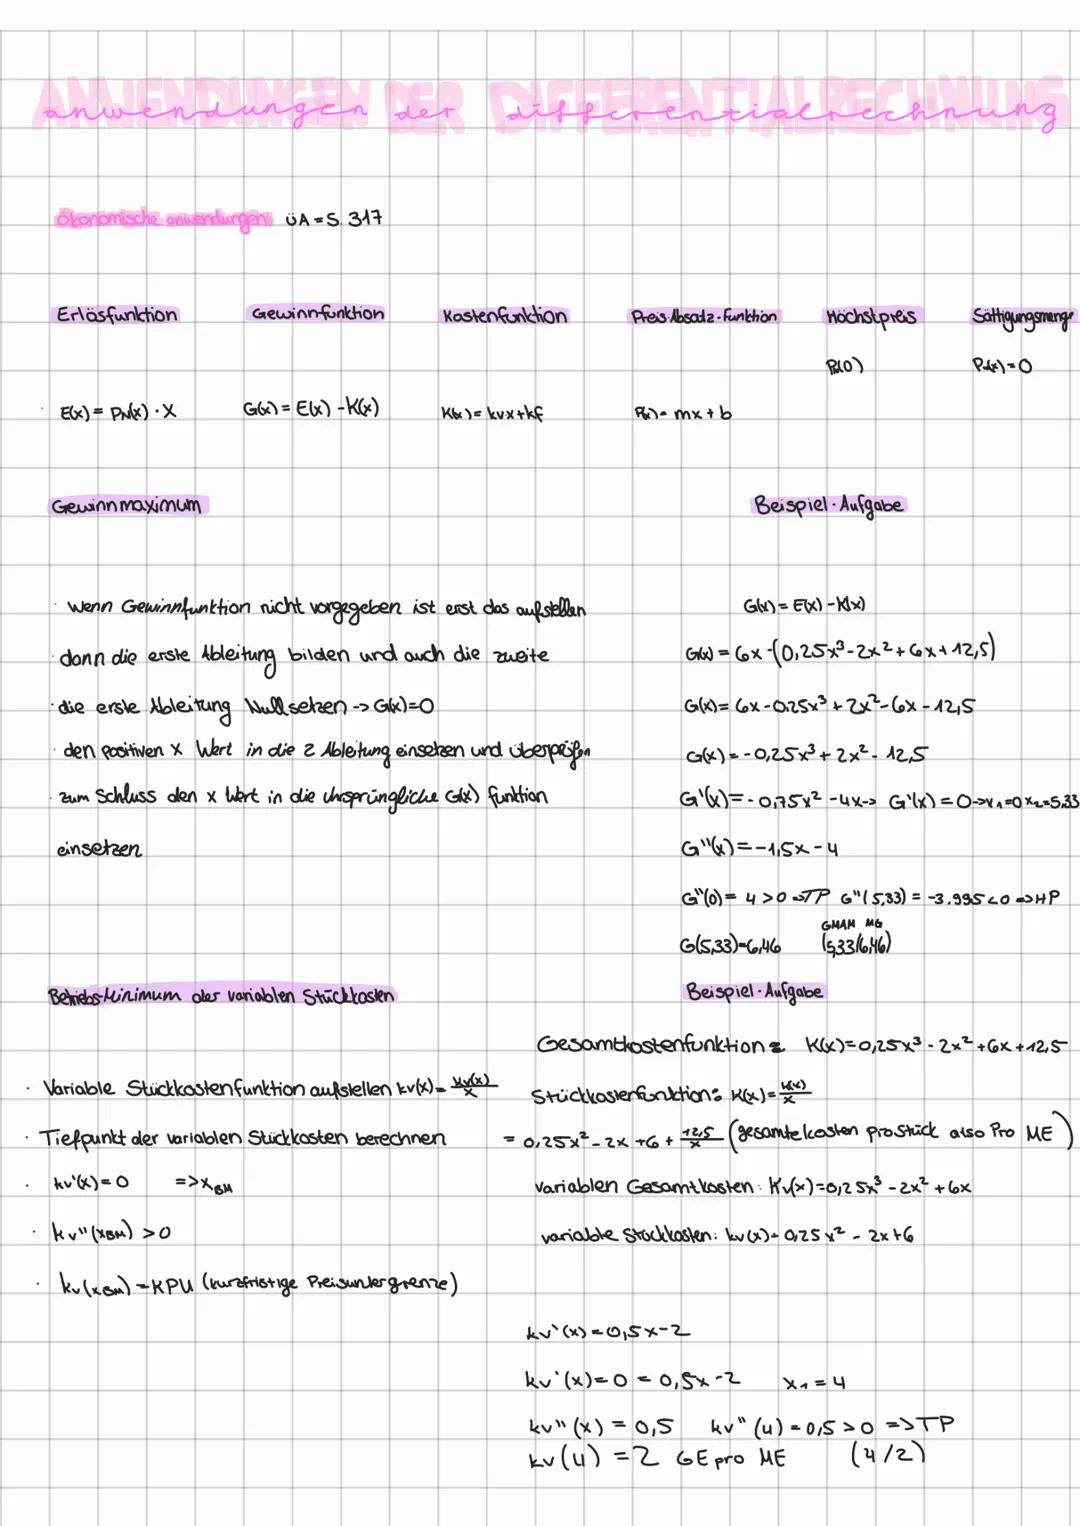 ANWENDUNGEN DER DIFFERENTIALRECHNUNG
anwendungen der differentialrechnung
ökonomische anwendungen ÜA = S. 317
Erlösfunktion Gewinnfunktion Kostenfunktion Preis-Absatz-Funktion Höchstpreis Sättigungsmenge
P(0) PN(x) = 0
· E(x) = PN(x) · X G(x) = E(x) - K(x) K(x) = kvx+kf P(x) = mx + b
Gewinnmaximum Beispiel-Aufgabe
· wenn Gewinnfunktion nicht vorgegeben ist erst das aufstellen
G(x) = E(x) - K(x)
· dann die erste Ableitung bilden und auch die zweite
G(x) = 6x - (0,25x³ - 2x² + 6x + 12,5)
· die erste Ableitung Nullsetzen -> G(x)=0
G(x) = 6x - 0,25x³ + 2x² - 6x - 12,5
· den positiven x Wert in die 2 Ableitung einsetzen und überprüfen
G(x) = -0,25x³ + 2x² - 12,5
· zum Schluss den x Wert in die ursprüngliche G(x) funktion
G'(x) = -0,75x² -4x -> G'(x) = 0 -> x₁=0 x₂=5,33
einsetzen
G''(x) = -1,5x - 4
G''(0) = 4 > 0 => TP G''(5,33) = -3.995 < 0 => HP
GMAM MG
G(5,33)=6,46 (5,33/6,46)
Betriebs-Minimum der variablen Stückkosten Beispiel-Aufgabe
Gesamtkostenfunktion: K(x)=0,25x³ - 2x² +6x +12,5
· Variable Stückkostenfunktion aufstellen kv(x) = Kv(x)/x
Stückkostenfunktion: K(x) = K(x)/x
· Tiefpunkt der variablen Stückkosten berechnen
= 0,25x² - 2x +6 + 12,5/x (gesamte kosten pro Stück also Pro ME)
· kv'(x) = 0 => xBM
variablen Gesamtkosten: Kv(x)=0,25x³ - 2x² + 6x
· kv''(xBM) > 0
variable Stückkosten: kv(x) = 0,25x² - 2x +6
· kv(xBM) = KPU (kurzfristige Preisuntergrenze)
kv'(x) = 0,5x-2
kv'(x) = 0 = 0,5x -2 x₁ = 4
kv''(x) = 0,5 kv''(4) = 0,5 > 0 => TP
kv(4) = 2 GE pro ME (4/2)